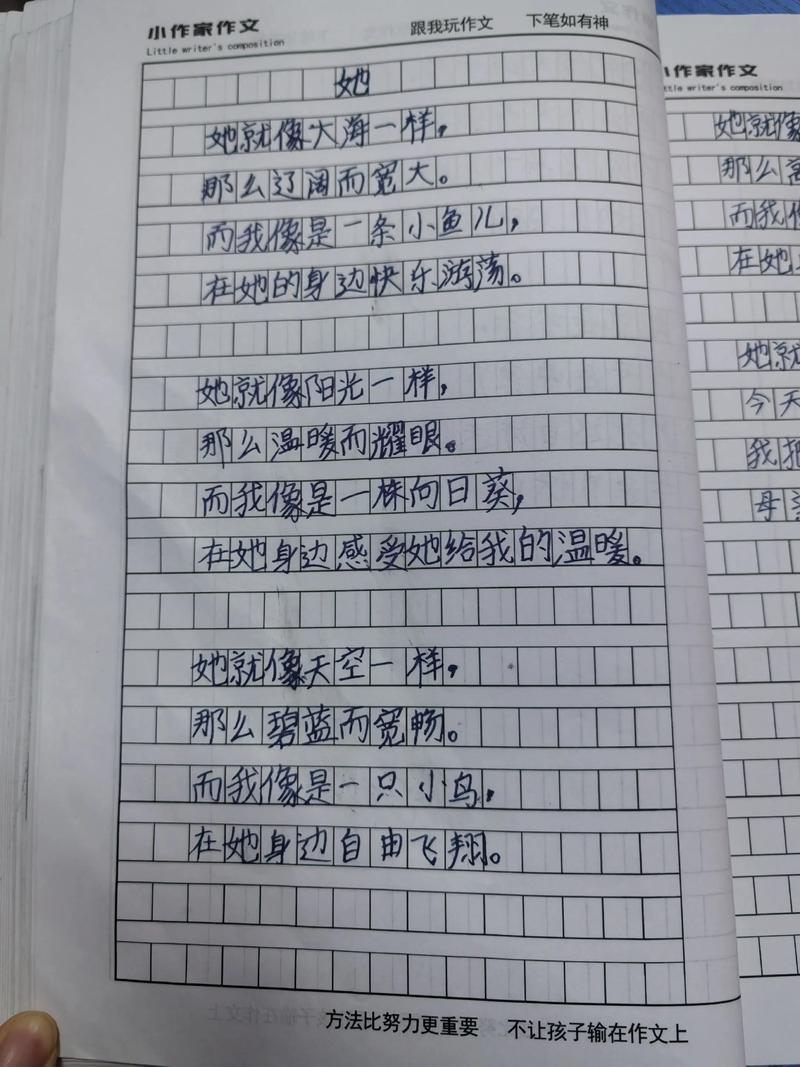 小作家作文
Little writer's composition
跟我玩作文 下笔如有神
她
她就像大海一样，
那么辽阔而宽大。
而我像是一条小鱼儿，
在她的身边快乐游荡。
她就像阳光一样，
那么温暖而耀眼。
而我像是一株向日葵，
在她身边感受她给我的温暖。
她就像天空一样，
那么碧蓝而宽畅。
而我像是一只小鸟，
在她身边自由飞翔。
方法比努力更重要 不让孩子输在作文上
小作家作文
ttle writer's composition
她就像
那么
而我
在她
她就
今天
我把
母